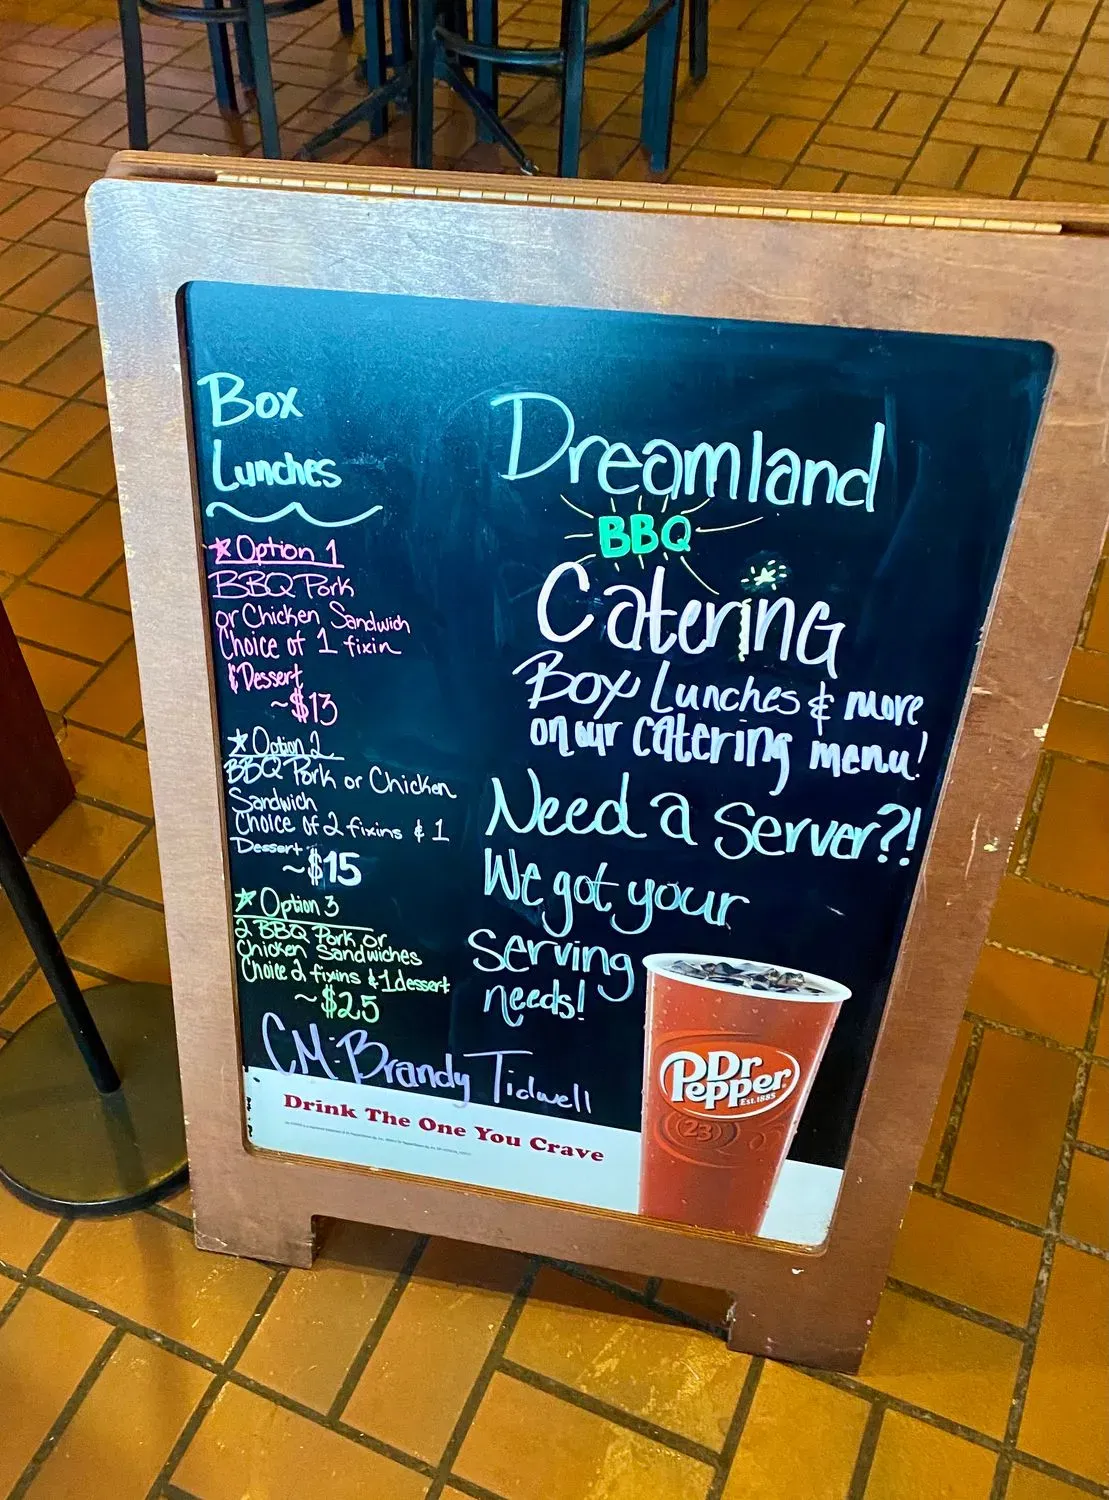 Box
Lunches
Option 1
BBQ Pork
or Chicken Sandwich
Choice of 1 fixin
& Dessert
~$13
Option 2
BBQ Pork or Chicken
Sandwich
Choice of 2 fixins & 1
Dessert
~$15
Option 3
2 BBQ Pork or
Chicken Sandwiches
Choice 2 fixins & 1 dessert
~$25
Dreamland
BBQ
Catering
Box Lunches & more
on our catering menu!
Need a Server?!
We got your
Serving
needs!
CM: Brandy Tidwell
Drink The One You Crave
Dr
Pepper
Est. 1885
23